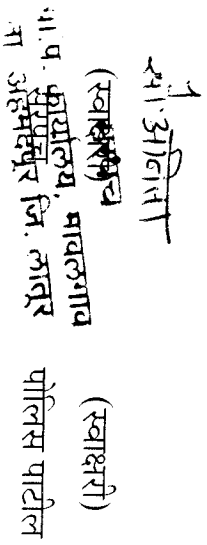 सौ. अनिता
(स्वाक्षरी)
सरपंच
ग्रा.प. कार्यालय, मावलगाव
ता अहमदपूर जि. लातूर
(स्वाक्षरी)
पोलिस पाटील